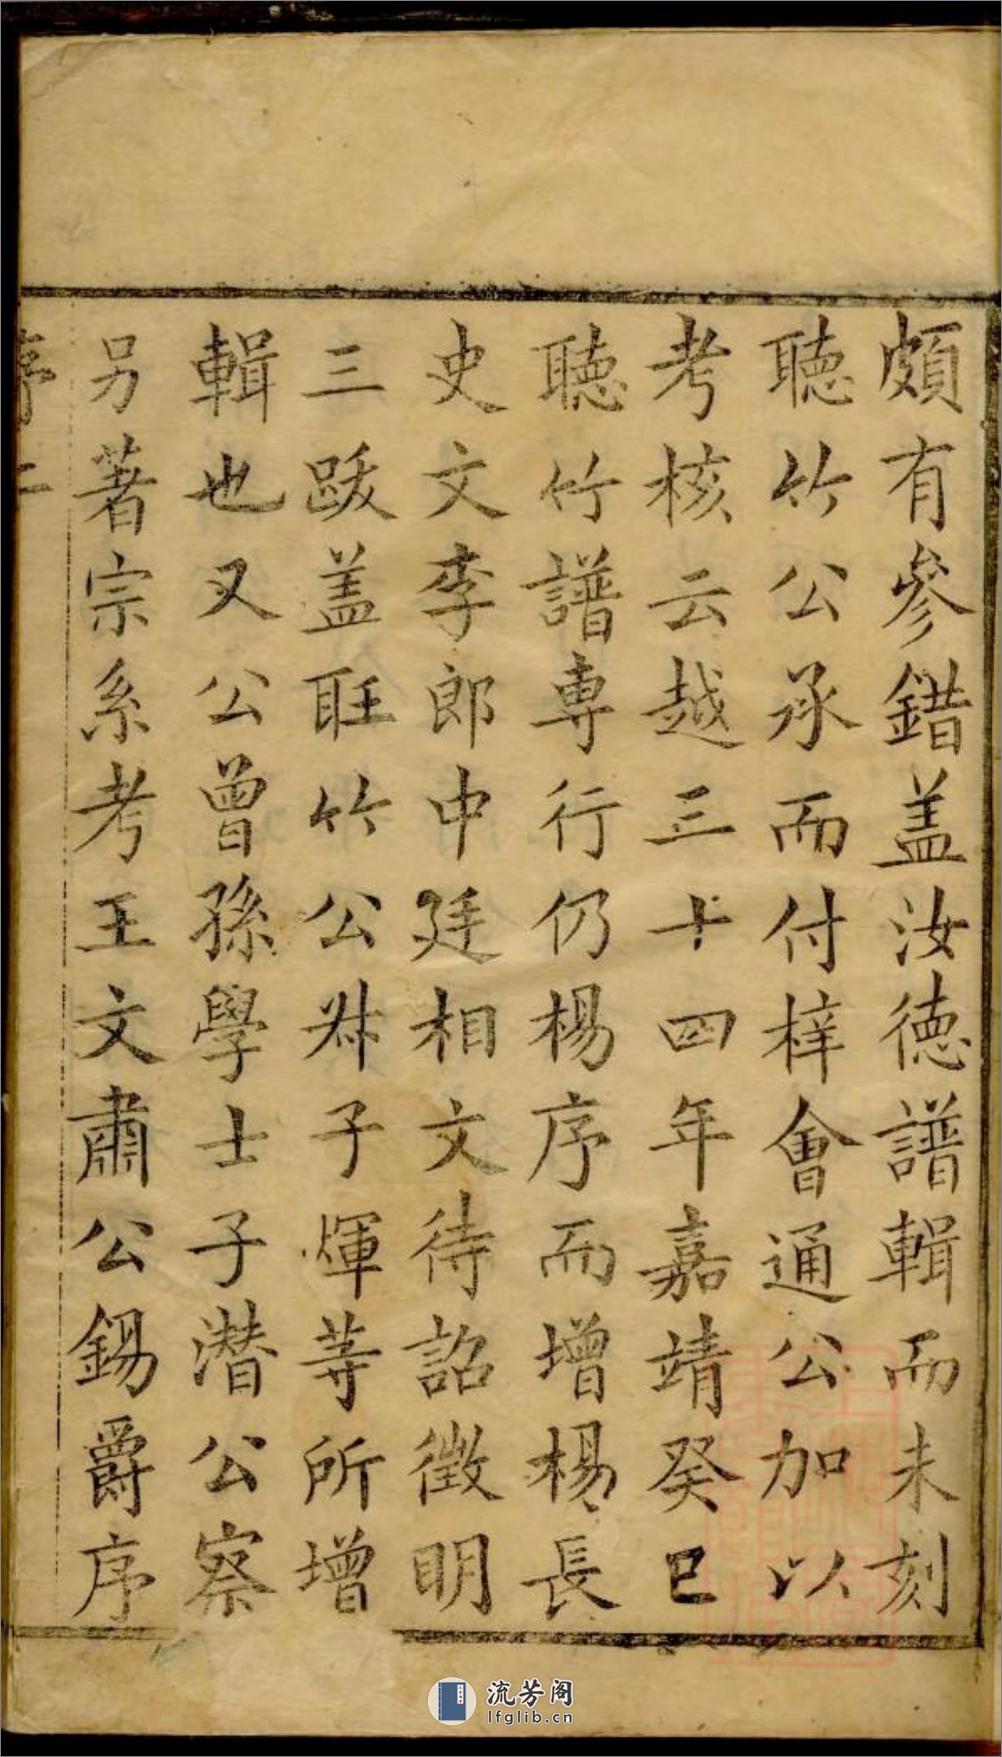 頗有參錯盖汝德譜輯而未刻
聴竹公承而付梓會通公加以
考核云越三十四年嘉靖癸巳
聴竹譜專行仍楊序而增楊長
史文李郎中廷相文待詔徵明
三跋盖耴竹公姝子煇等所增
輯也又公曾孫學士子潜公察
另著宗系考王文肅公錫爵序
序 二
流芳阁
lfglib.cn